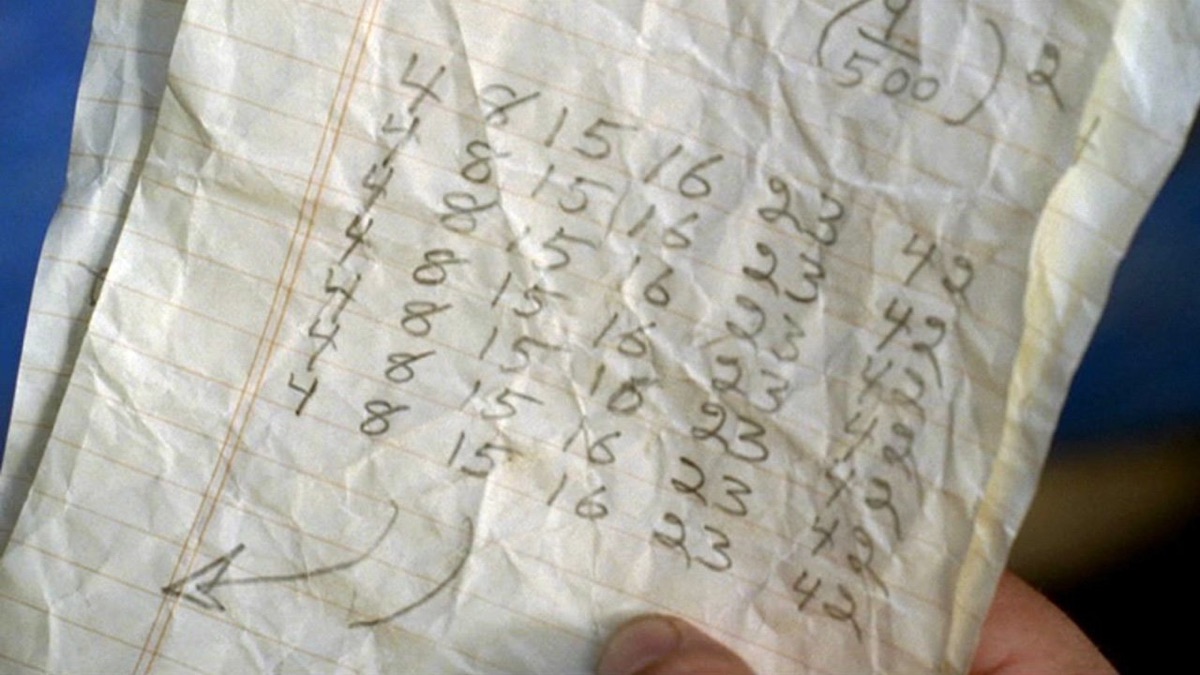 500 2
4 8 15 16 23 42
4 8 15 16 23 42
4 8 15 16 23 42
4 8 15 16 23 42
4 8 15 16 23 42
4 8 15 16 23 42
4 8 15 16 23 42